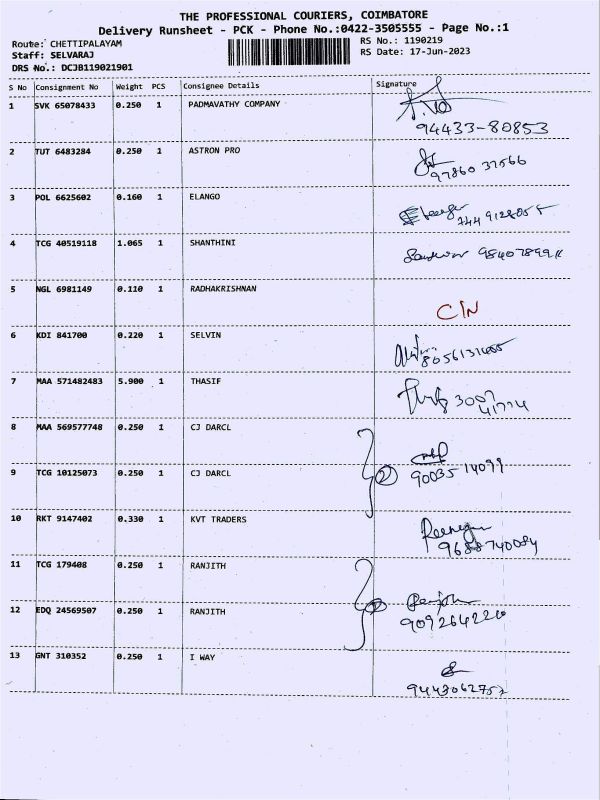 THE PROFESSIONAL COURIERS, COIMBATORE
Delivery Runsheet - PCK - Phone No.:0422-3505555 - Page No.:1
Route: CHETTIPALAYAM RS No.: 1190219
Staff: SELVARAJ RS Date: 17-Jun-2023
DRS No.: DCJB119021901
S No Consignment No Weight PCS Consignee Details Signature
1 SVK 65078433 0.250 1 PADMAVATHY COMPANY
94433-80853
2 TUT 6483284 0.250 1 ASTRON PRO
97860 37566
3 POL 6625602 0.160 1 ELANGO
4 TCG 40519118 1.065 1 SHANTHINI
5 NGL 6981149 0.110 1 RADHAKRISHNAN
C/N
6 KDI 841700 0.220 1 SELVIN
7 MAA 571482483 5.900 1 THASIF
8 MAA 569577748 0.250 1 CJ DARCL
9 TCG 10125073 0.250 1 CJ DARCL
2 90035 14099
10 RKT 9147402 0.330 1 KVT TRADERS
9688740084
11 TCG 179408 0.250 1 RANJITH
12 EDQ 24569507 0.250 1 RANJITH
13 GNT 310352 0.250 1 I WAY